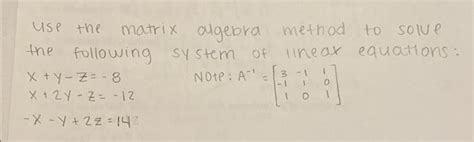 use the matrix algebra method to solve
the following system of linear equations:
x + y - z = -8 Note: A⁻¹ = [3 -1 1
x + 2y - z = -12 -1 1 0
1 0 1]
-x - y + 2z = 14